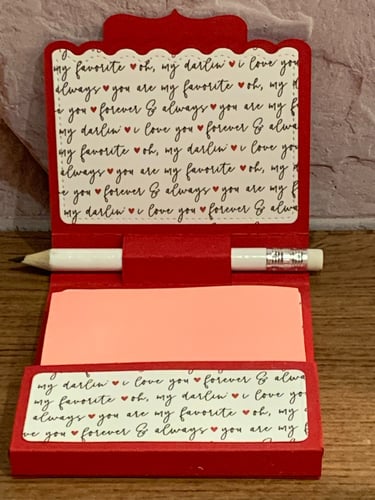 my favorite ♥ oh, my darlin' ♥ i love you
always ♥ you are my favorite ♥ oh, m
e you ♥ forever & always ♥ you are my
my darlin' ♥ i love you ♥ forever & alwa
my favorite ♥ oh, my darlin' ♥ i love you
always ♥ you are my favorite ♥ oh, m
e you ♥ forever & always ♥ you are my f
my darlin' ♥ i love you ♥ forever & alwa
my darlin' ♥ i love you ♥ forever & alwa
my favorite ♥ oh, my darlin' ♥ i love yo
always ♥ you are my favorite ♥ oh, my
e you ♥ forever & always ♥ you are my